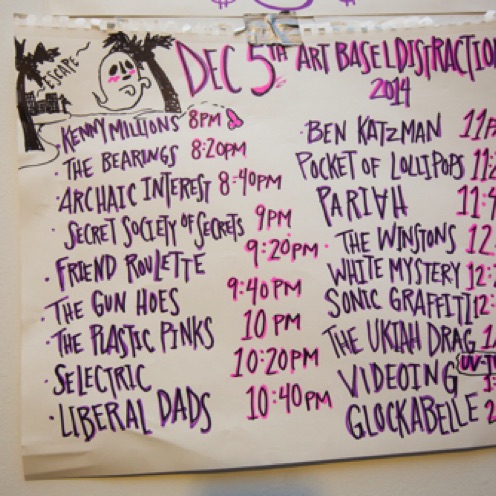 ESCAPE~
DEC 5TH ART BASEL DISTRACTIO
2014
KENNY MILLIONS 8PM
· THE BEARINGS 8:20PM
· ARCHAIC INTEREST 8:40PM
· SECRET SOCIETY OF SECRETS 9PM
· FRIEND ROULETTE 9:20PM
· THE GUN HOES 9:40PM
· THE PLASTIC PINKS 10PM
· SELECTRIC 10:20PM
· LIBERAL DADS 10:40PM
· BEN KATZMAN 11P
POCKET OF LOLLIPOPS 11:2
PARIAH 11:4
· THE WINSTONS 12
WHITE MYSTERY 12:2
SONIC GRAFFITI 12:
THE UKIAH DRAG 1
VIDEOING
GLOCKABELLE 2